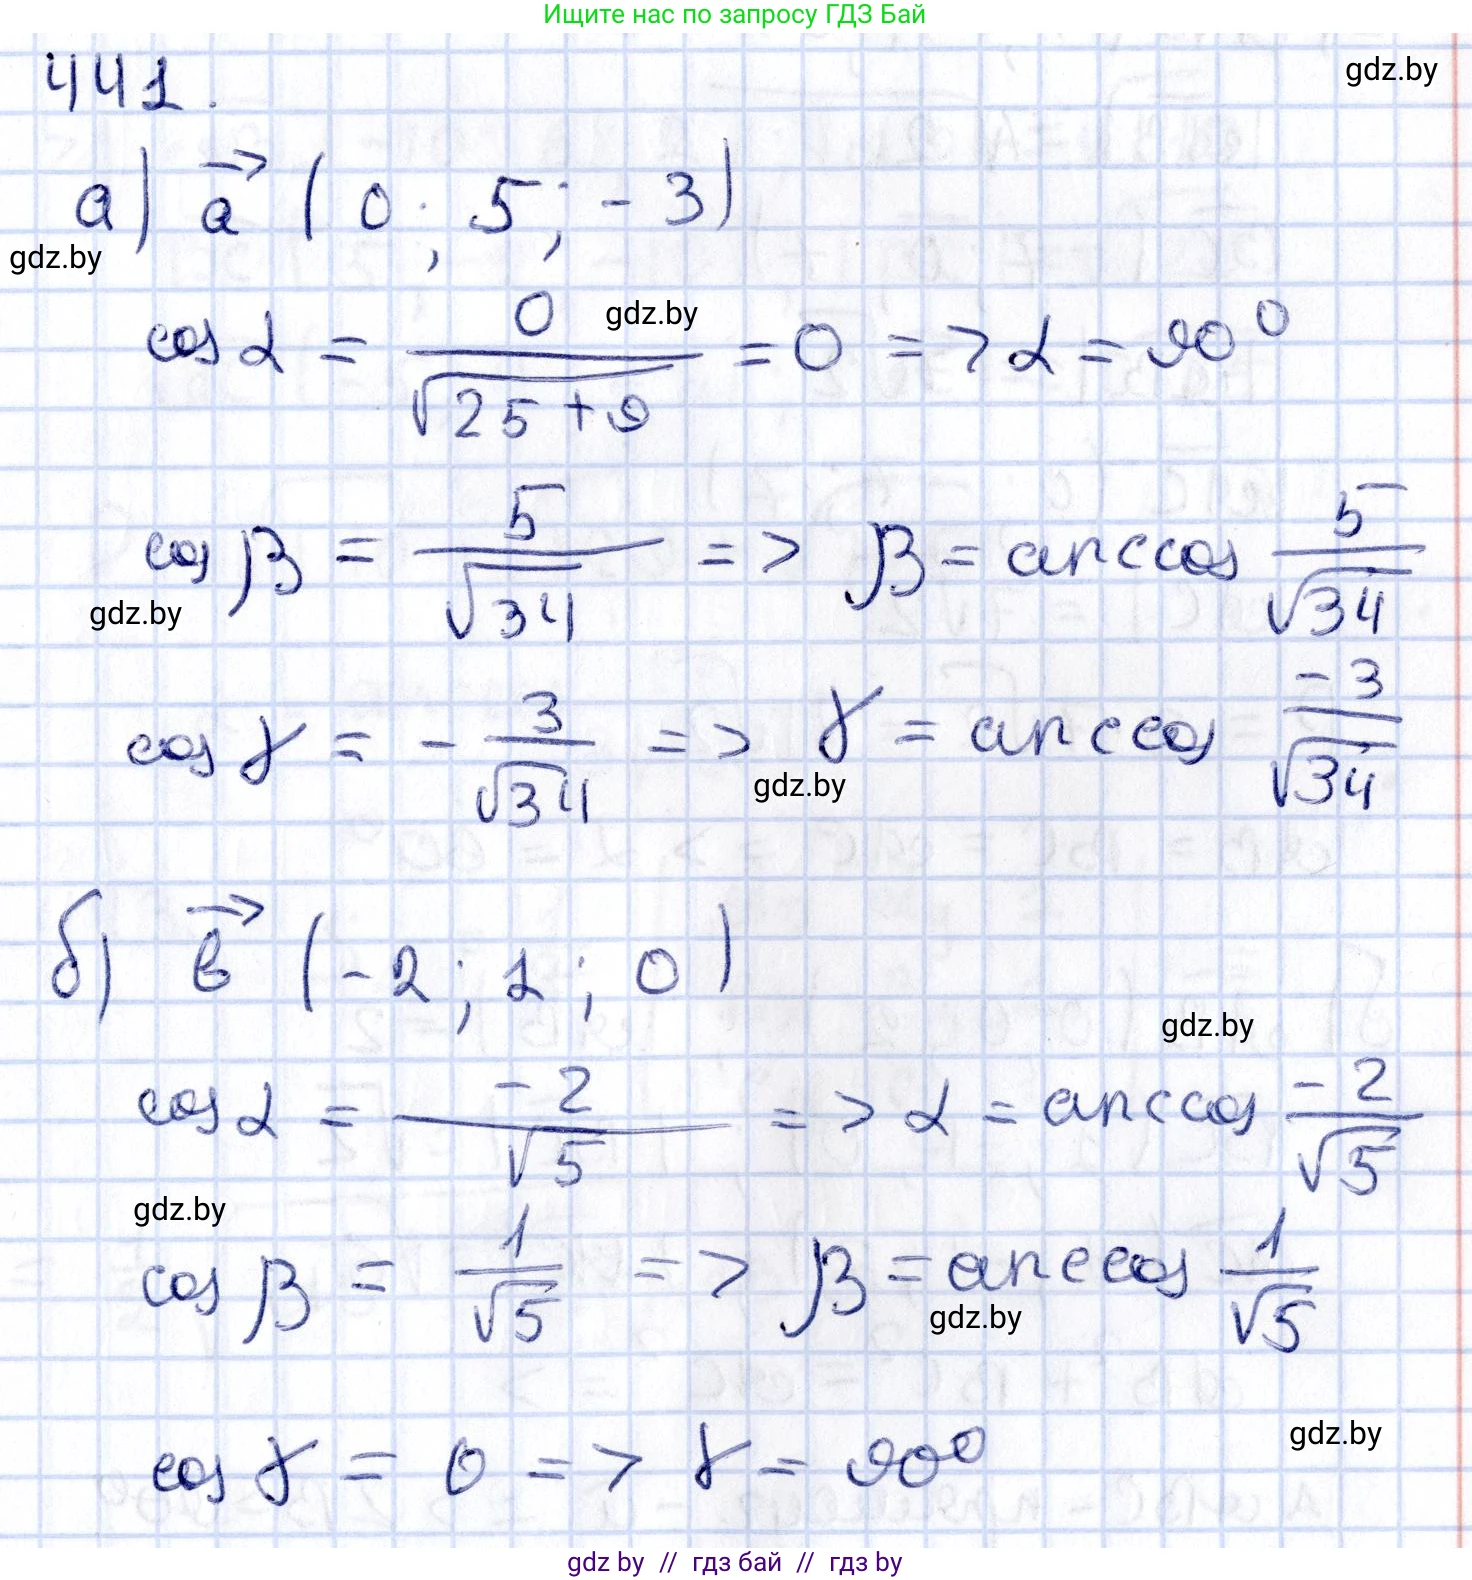 Ищите нас по запросу ГДЗ Бай
441.
gdz.by
а) a⃗ (0; 5; -3)
gdz.by
cos α = 0/√(25+9) = 0 => α = 90⁰
gdz.by
cos β = 5/√34 => β = arccos 5/√34
gdz.by
cos γ = - 3/√34 => γ = arccos -3/√34
gdz.by
б) в⃗ (-2; 1; 0)
gdz.by
cos α = -2/√5 => α = arccos -2/√5
gdz.by
cos β = 1/√5 => β = arccos 1/√5
gdz.by
cos γ = 0 => γ = 90⁰
gdz.by
gdz by // гдз бай // гдз by